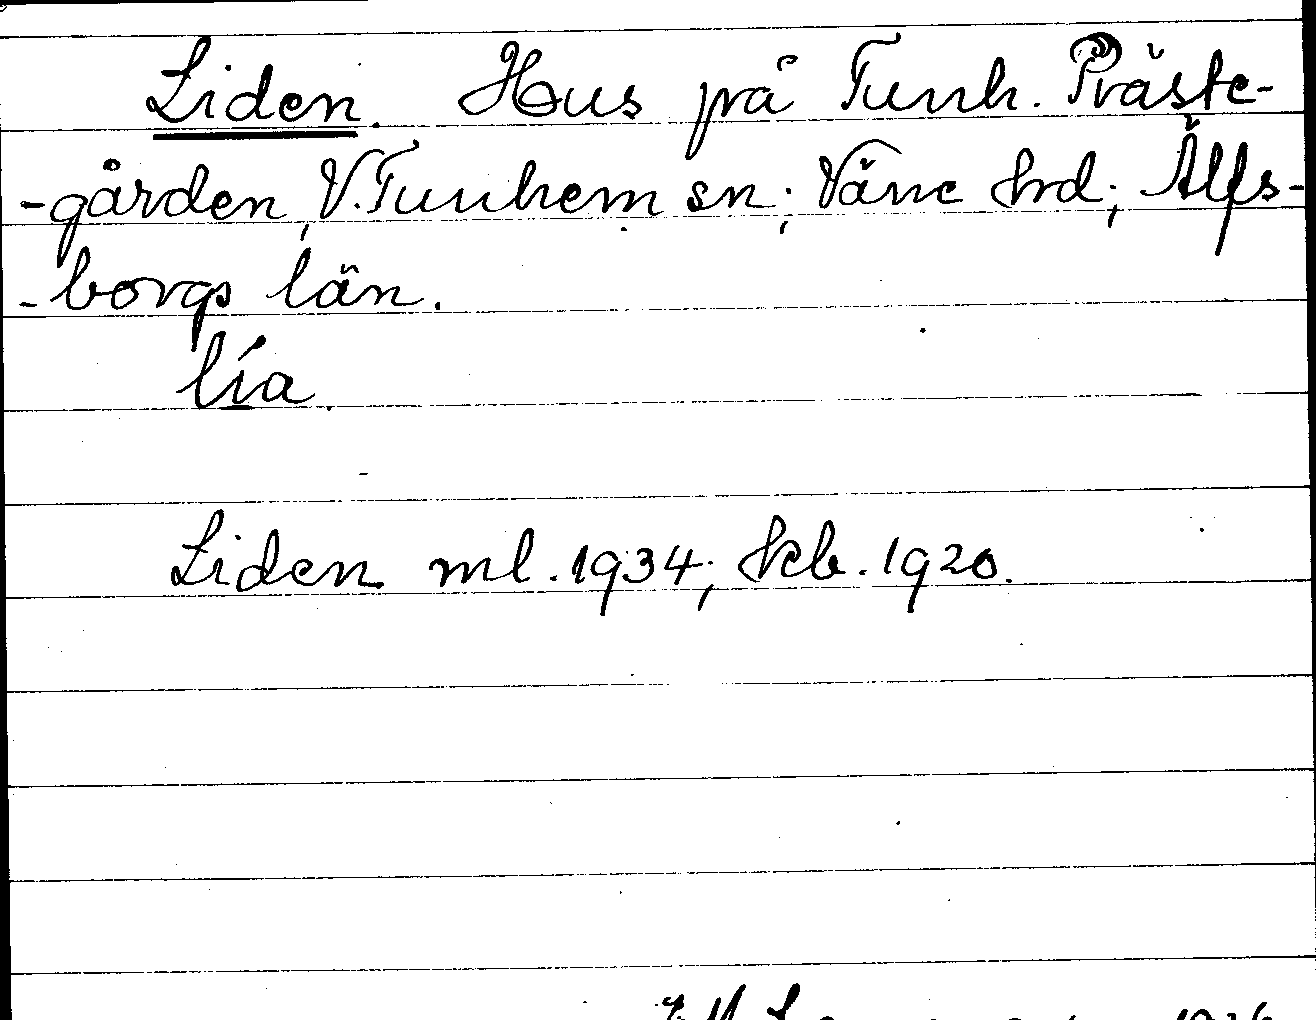 Liden. Hus på Tunh. Präste-
-gården, V. Tunhem sn; Väne hrd; Älfs-
-borgs län.
lía
Liden ml. 1934; hcb. 1920.